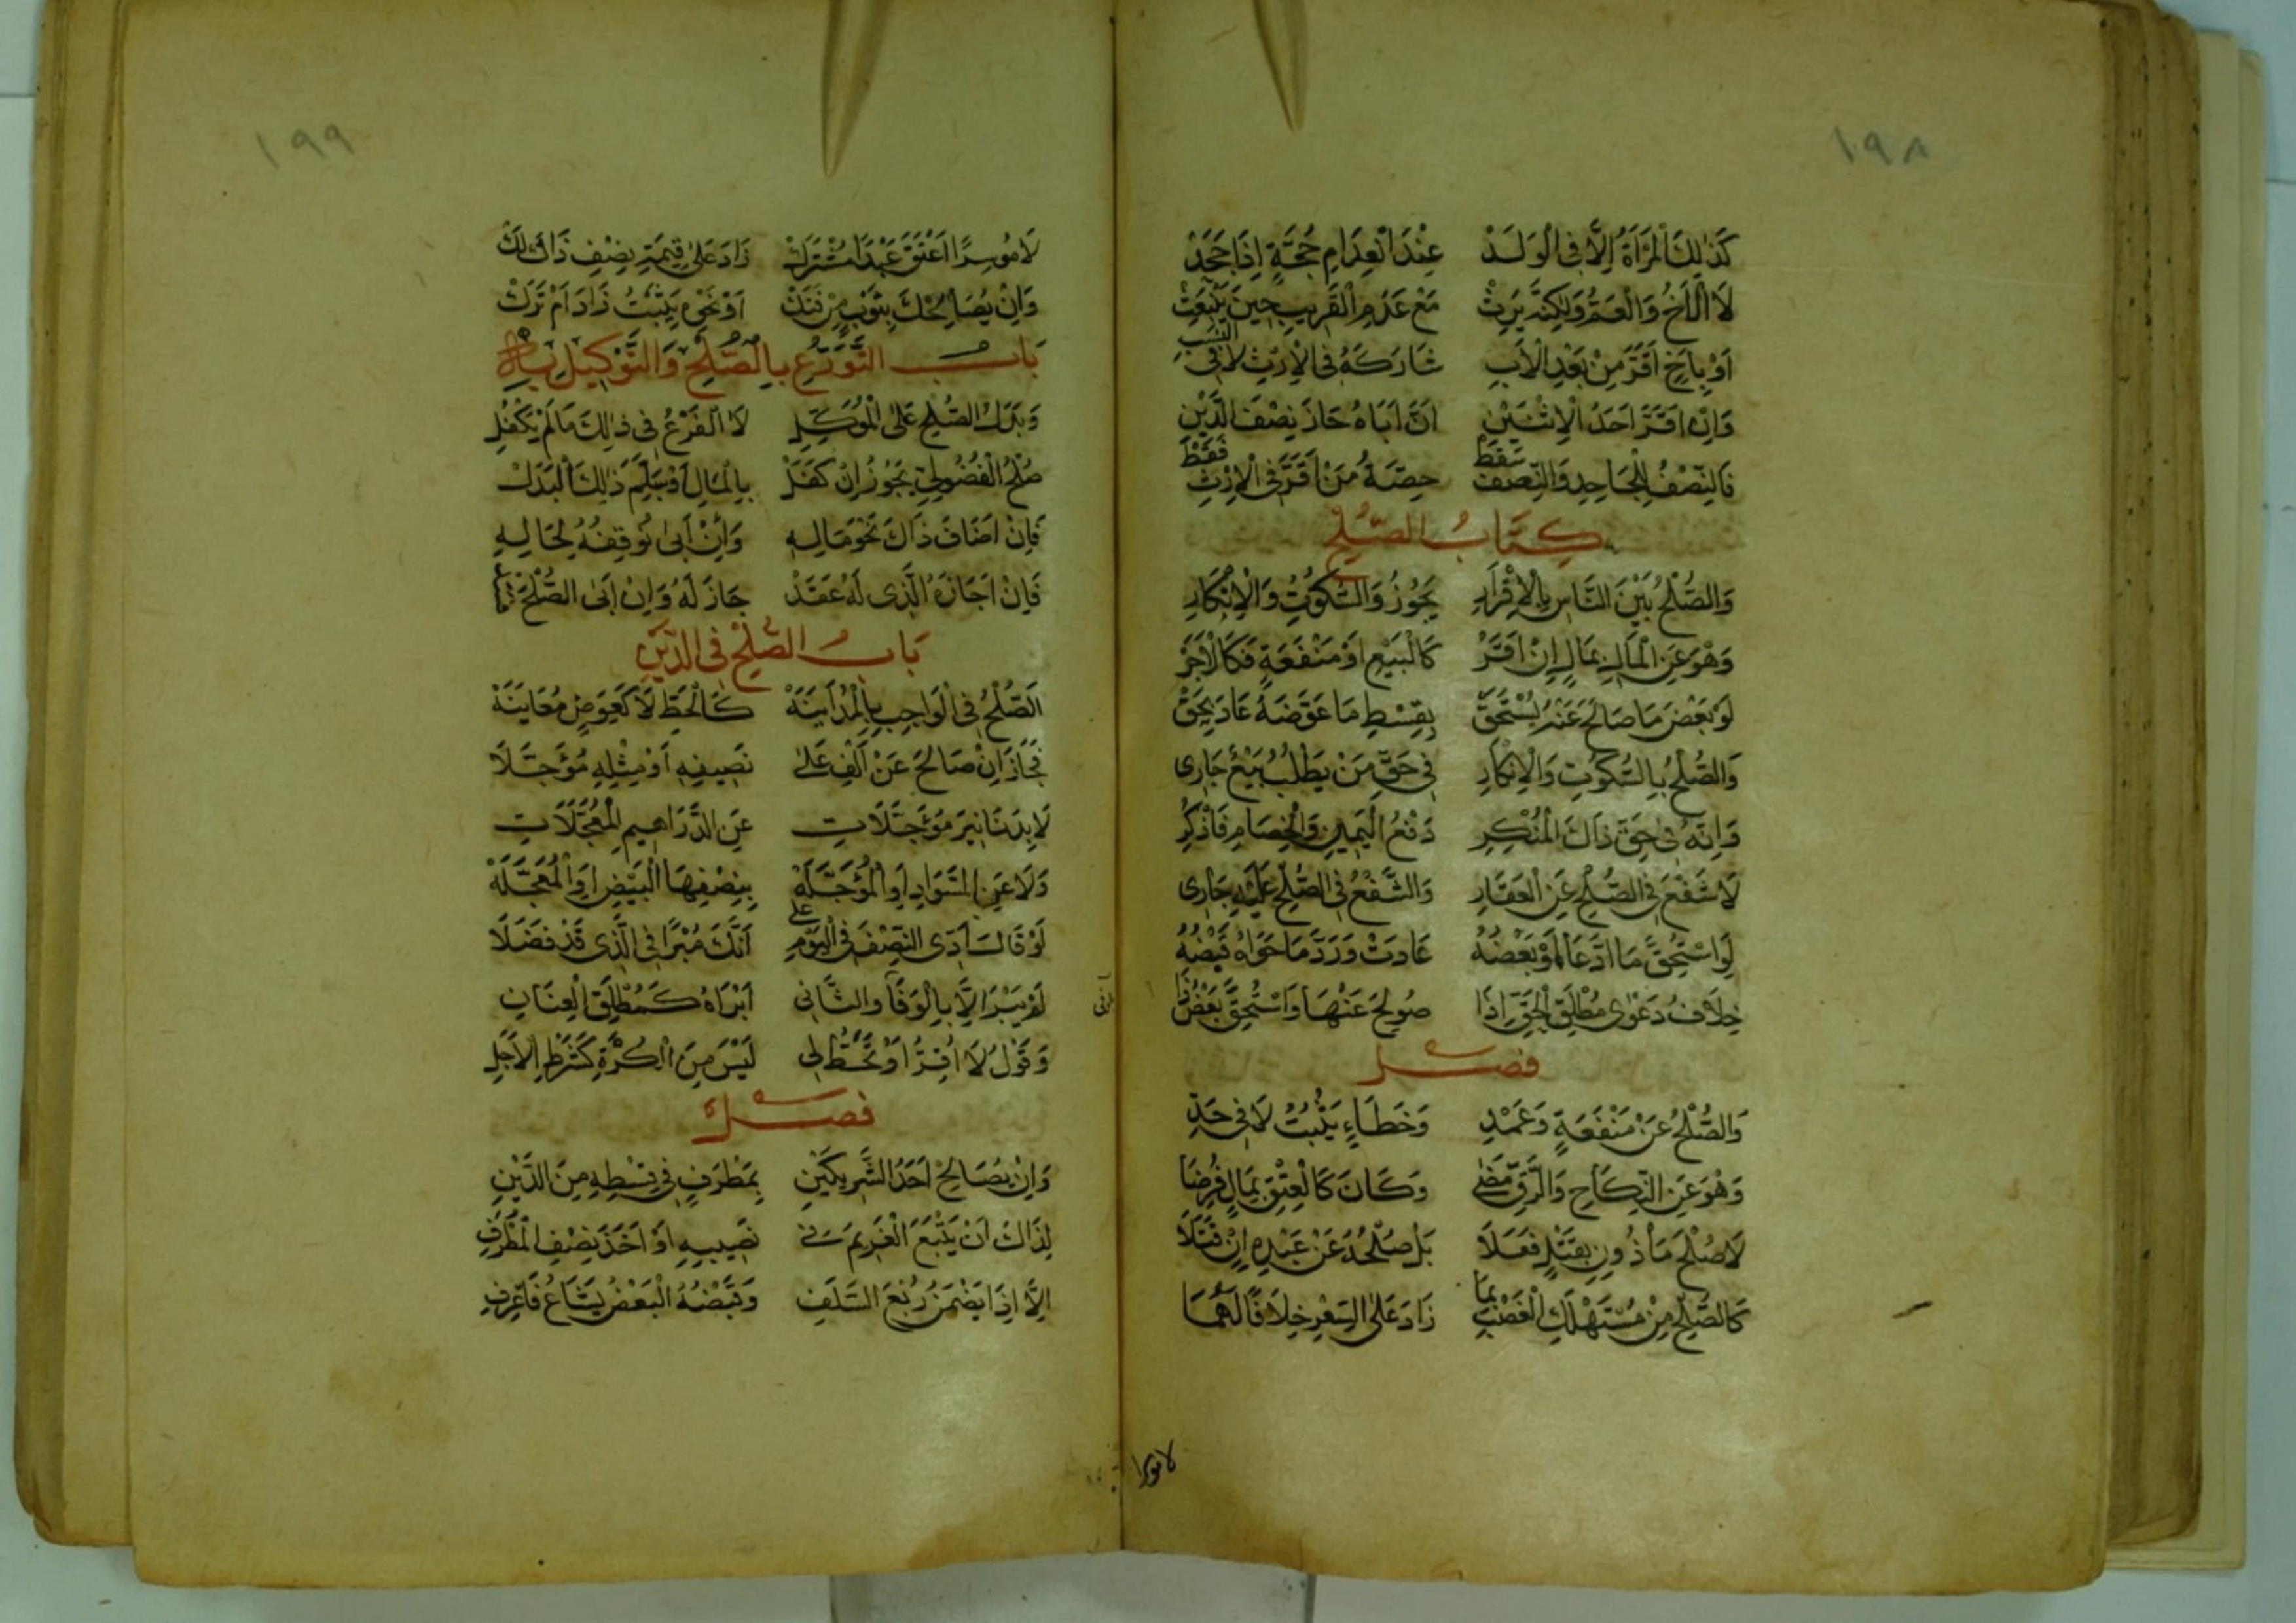 ١٩٨
كَذٰلِكَ الْمَرْأَةُ إِلَّا فِي الْوَلَدْ عِنْدَ انْعِدَامِ حُجَّةٍ إِذَا جَحَدْ
لَا الْأَخُ وَالْعَمُّ وَلٰكِنْ يَرِثُ مَعْ عَدَمِ الْقَرِيبِ حِينَ يُبْعَثُ
أَوْ بِأَخٍ أَقَرَّ مِنْ بَعْدِ الْأَبِ شَارَكَهُ فِي الْإِرْثِ لَا فِي النَّسَبِ
وَإِنْ أَقَرَّ أَحَدُ الْإِثْنَيْنِ أَنَّ أَبَاهُ حَازَ نِصْفَ الدَّيْنِ
فَالنِّصْفُ لِلْجَاحِدِ وَالنِّصْفُ سَقَطْ حِصَّةُ مَنْ أَقَرَّ فِي الْإِرْثِ فَقَطْ
كِتَابُ الصُّلْحِ
وَالصُّلْحُ بَيْنَ النَّاسِ بِالْإِقْرَارِ يَجُوزُ وَالسُّكُوتِ وَالْإِنْكَارِ
وَهْوَ عَنِ الْمَالِ بِمَالٍ إِنْ أَقَرّْ كَالْبَيْعِ أَوْ مَنْفَعَةٍ فَكَالْأَجْرْ
لَوْ بَعْضُ مَا صَالَحَ عَنْهُ يُسْتَحَقّْ بِقِسْطِ مَا عَوَّضَهُ عَادَ بِحَقّْ
وَالصُّلْحُ بِالسُّكُوتِ وَالْإِنْكَارِ فِي حَقِّ مَنْ يَطْلُبُ بَيْعٌ جَارِي
وَإِنَّهُ فِي حَقِّ ذَاكَ الْمُنْكِرِ دَفْعُ الْيَمِينِ وَالْخِصَامِ فَاذْكُرِ
لَا شَفْعَ فِي الصُّلْحِ عَنِ الْعَقَارِ وَالشَّفْعُ فِي الصُّلْحِ عَلَيْهِ جَارِي
لَوِ اسْتُحِقَّ مَا ادَّعَا أَوْ بَعْضُهُ عَادَتْ وَرَدَّ مَا حَوَاهُ قَبْضُهُ
خِلَافُ دَعْوَى مُطْلَقِ الْحَقِّ إِذَا صُولِحَ عَنْهَا وَاسْتُحِقَّ بَعْضُ ذَا
فصل
وَالصُّلْحُ عَنْ مَنْفَعَةٍ وَعَمْدِ وَخَطَاءٍ يَثْبُتُ لَا فِي حَدِّ
وَهْوَ عَنِ النِّكَاحِ وَالرِّقِّ مَضٰى وَكَانَ كَالْعِتْقِ بِمَالٍ فُرِضَا
لَا صُلْحُ مَأْذُونٍ بِقَتْلٍ فَعَلَا بَلْ صُلْحُهُ عَنْ عَبْدِهِ إِنْ قَتَلَا
كَالصُّلْحِ مِنْ مُسْتَهْلَكِ الْغَصْبِ بِمَا زَادَ عَلَى السِّعْرِ خِلَافًا لَهُمَا
١٩٩
لَا مُوسِرًا أَعْتَقَ عَبْدًا مُشْتَرَكْ زَادَ عَلٰى قِيمَةِ نِصْفٍ ذَاكَ لَكْ
وَإِنْ يُصَالِحْكَ بِثَوْبٍ أَوْ نَحْوِ
بَابُ التَّوَرُّعِ بِالصُّلْحِ وَالتَّوْكِيلِ بِهِ
وَبَدَلُ الصُّلْحِ عَلَى الْمُوَكِّلِ لَا الْفَرْعُ فِي ذٰلِكَ مَا لَمْ يَكْفُلِ
صُلْحُ الْفُضُولِيِّ يَجُوزُ إِنْ كَفَلْ بِالْمَالِ أَوْ سَلَّمَ ذٰلِكَ الْبَدَلْ
فَإِنْ أَضَافَ ذَاكَ نَحْوَ مَالِهِ وَإِنْ أَبٰى نُوقِفُهُ لِحَالِهِ
فَإِنْ أَجَازَهُ الَّذِي لَهُ عَقَدْ جَازَ لَهُ وَإِنْ أَبَى الصُّلْحَ
بَابُ الصُّلْحِ فِي الدَّيْنِ
اَلصُّلْحُ فِي الْوَاجِبِ بِالْمُدَايَنَهْ كَالْحَطِّ لَا كَعِوَضٍ مُعَايَنَهْ
فَجَازَ إِنْ صَالَحَ عَنْ أَلْفٍ عَلٰى نَصِيفِهِ أَوْ مِثْلِهِ مُؤَجَّلَا
لَا بِدَنَانِيرَ مُؤَجَّلَاتِ عَنِ الدَّرَاهِيمِ الْمُعَجَّلَاتِ
وَلَا عَنِ السَّوَادِ أَوِ الْمُؤَجَّلَهْ بِنِصْفِهَا الْبِيضِ أَوِ الْمُعَجَّلَهْ
لَوْ قَالَ أَدِّي النِّصْفَ فِي الْيَوْمِ عَلٰى أَنَّكَ مُبْرًا فِي الَّذِي قَدْ فَضَلَا
لَمْ يَبْرَ إِلَّا بِالْوَفَا وَالثَّانِي أَبْرَاهُ كَمُطْلَقِ الْعِنَانِ
وَقَوْلُ لَا أُقِرُّ أَوْ تَحُطَّ لِي لَيْسَ مِنَ الْكُرْهِ كَشَرْطِ الْأَجَلِ
فصل
وَإِنْ يُصَالِحْ أَحَدُ الشَّرِيكَيْنِ بِمُطْرَفٍ فِي قِسْطِهِ مِنَ الدَّيْنِ
لِذَاكَ أَنْ يَتْبَعَ الْغَرِيمَ فِي نَصِيبِهِ أَوْ أَخْذَ نِصْفِ الْمُطْرَفِ
إِلَّا إِذَا يَضْمَنُ رُبْعَ السَّلَفِ وَقَبْضُهُ الْبَعْضَ يُشَاعُ فَاعْرِفِ
لا موسرا